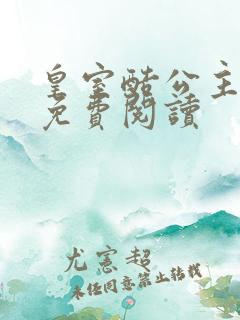 皇室酷公主
免費閱讀
尤憲超
未經同意禁止轉載